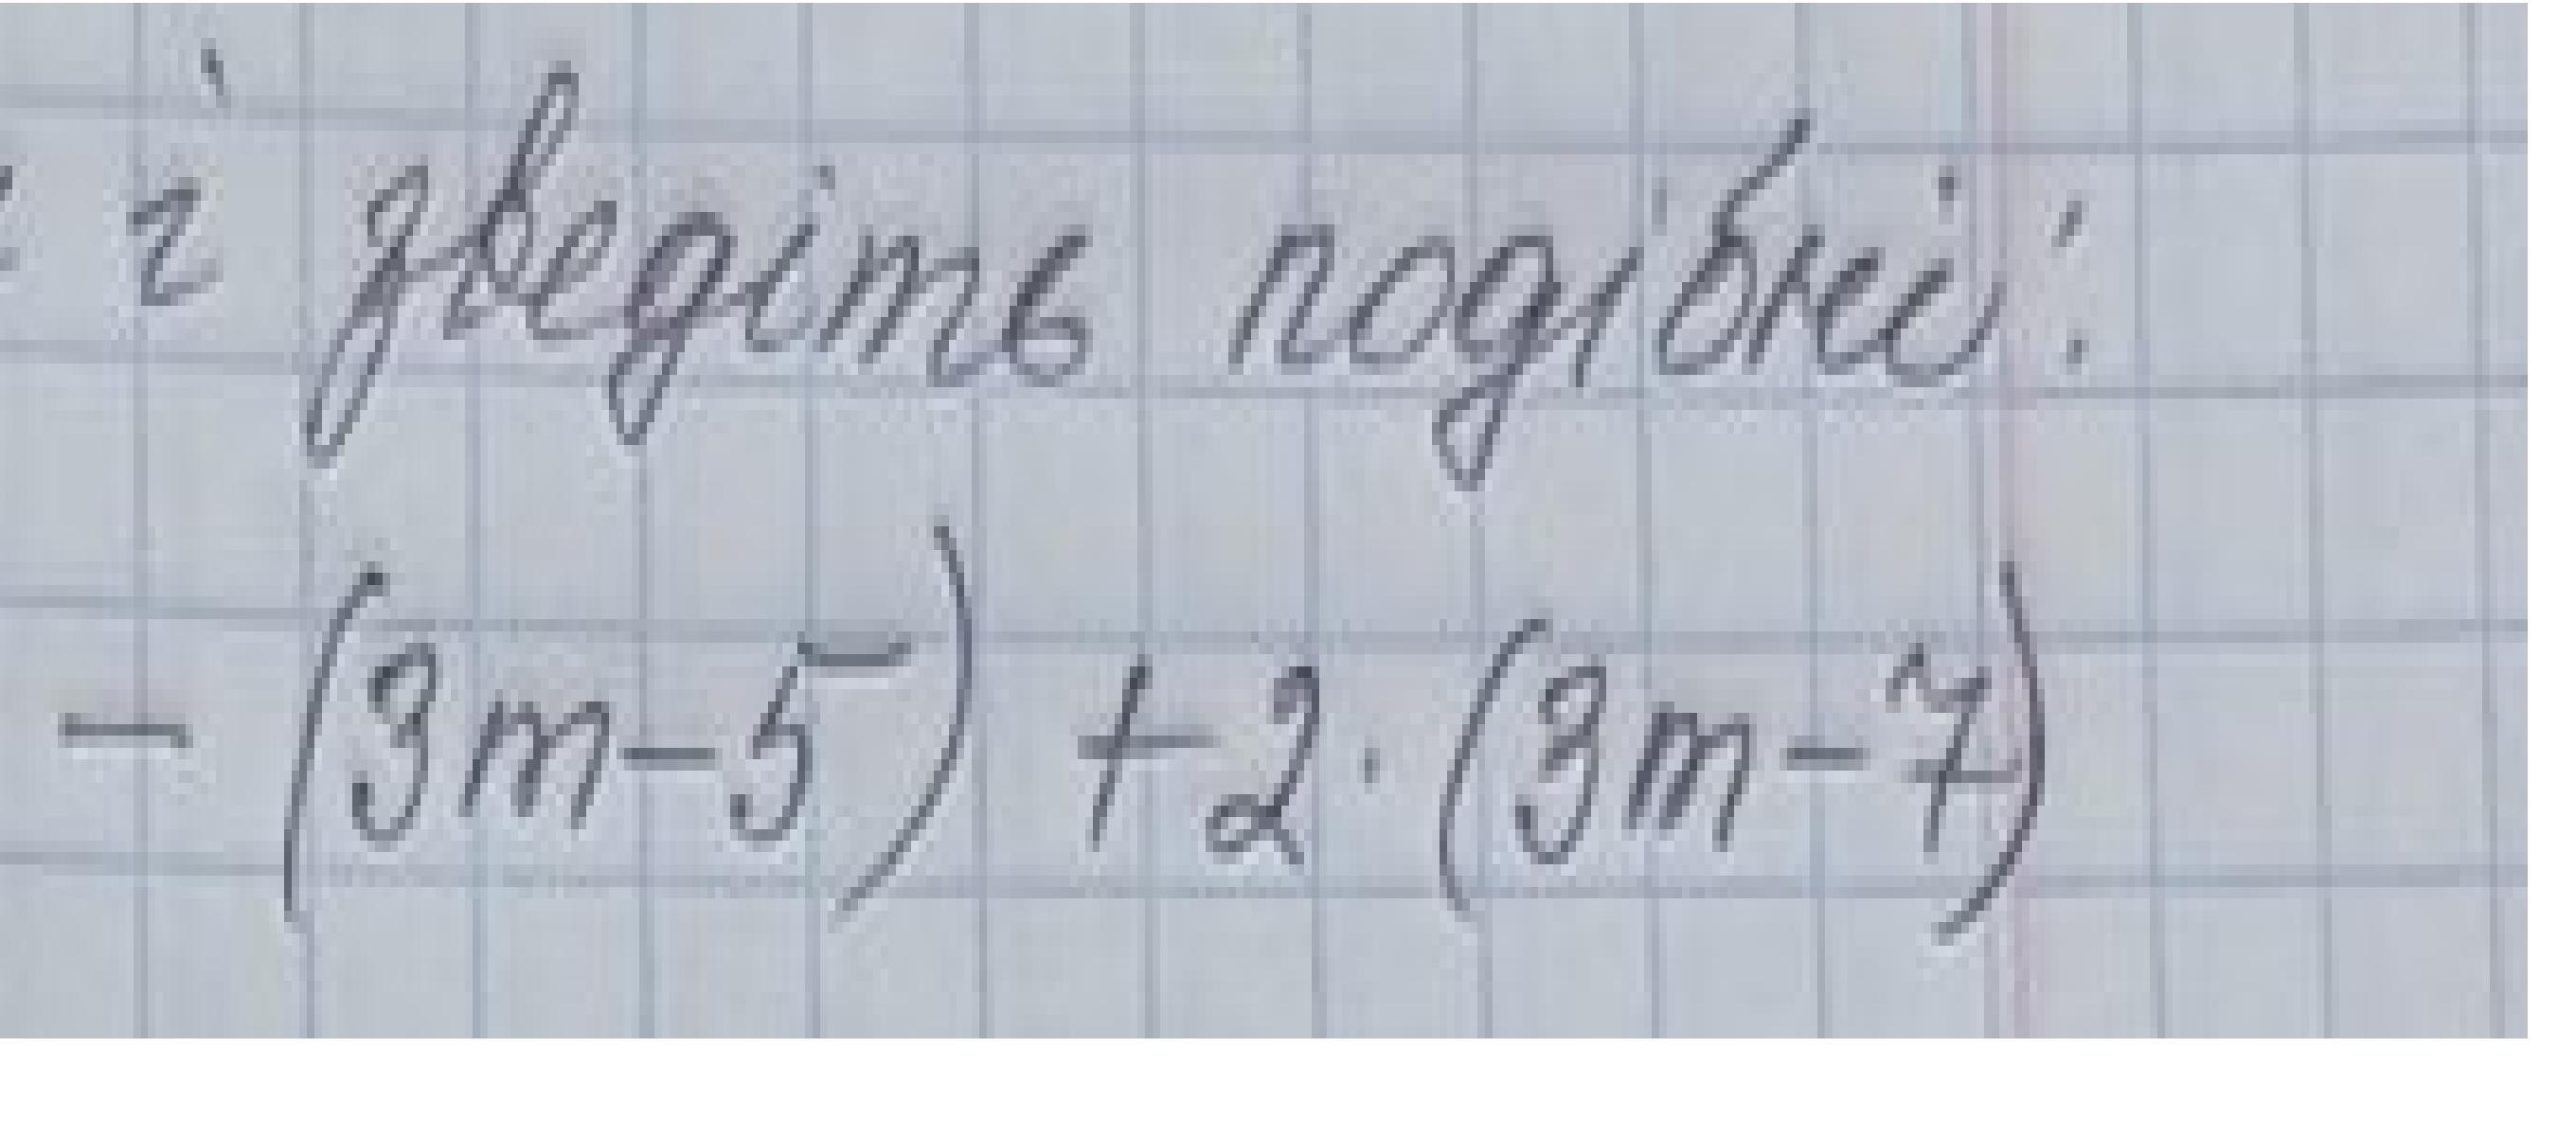 і зведіть подібні:
- (3m-5) + 2 · (3m-7)